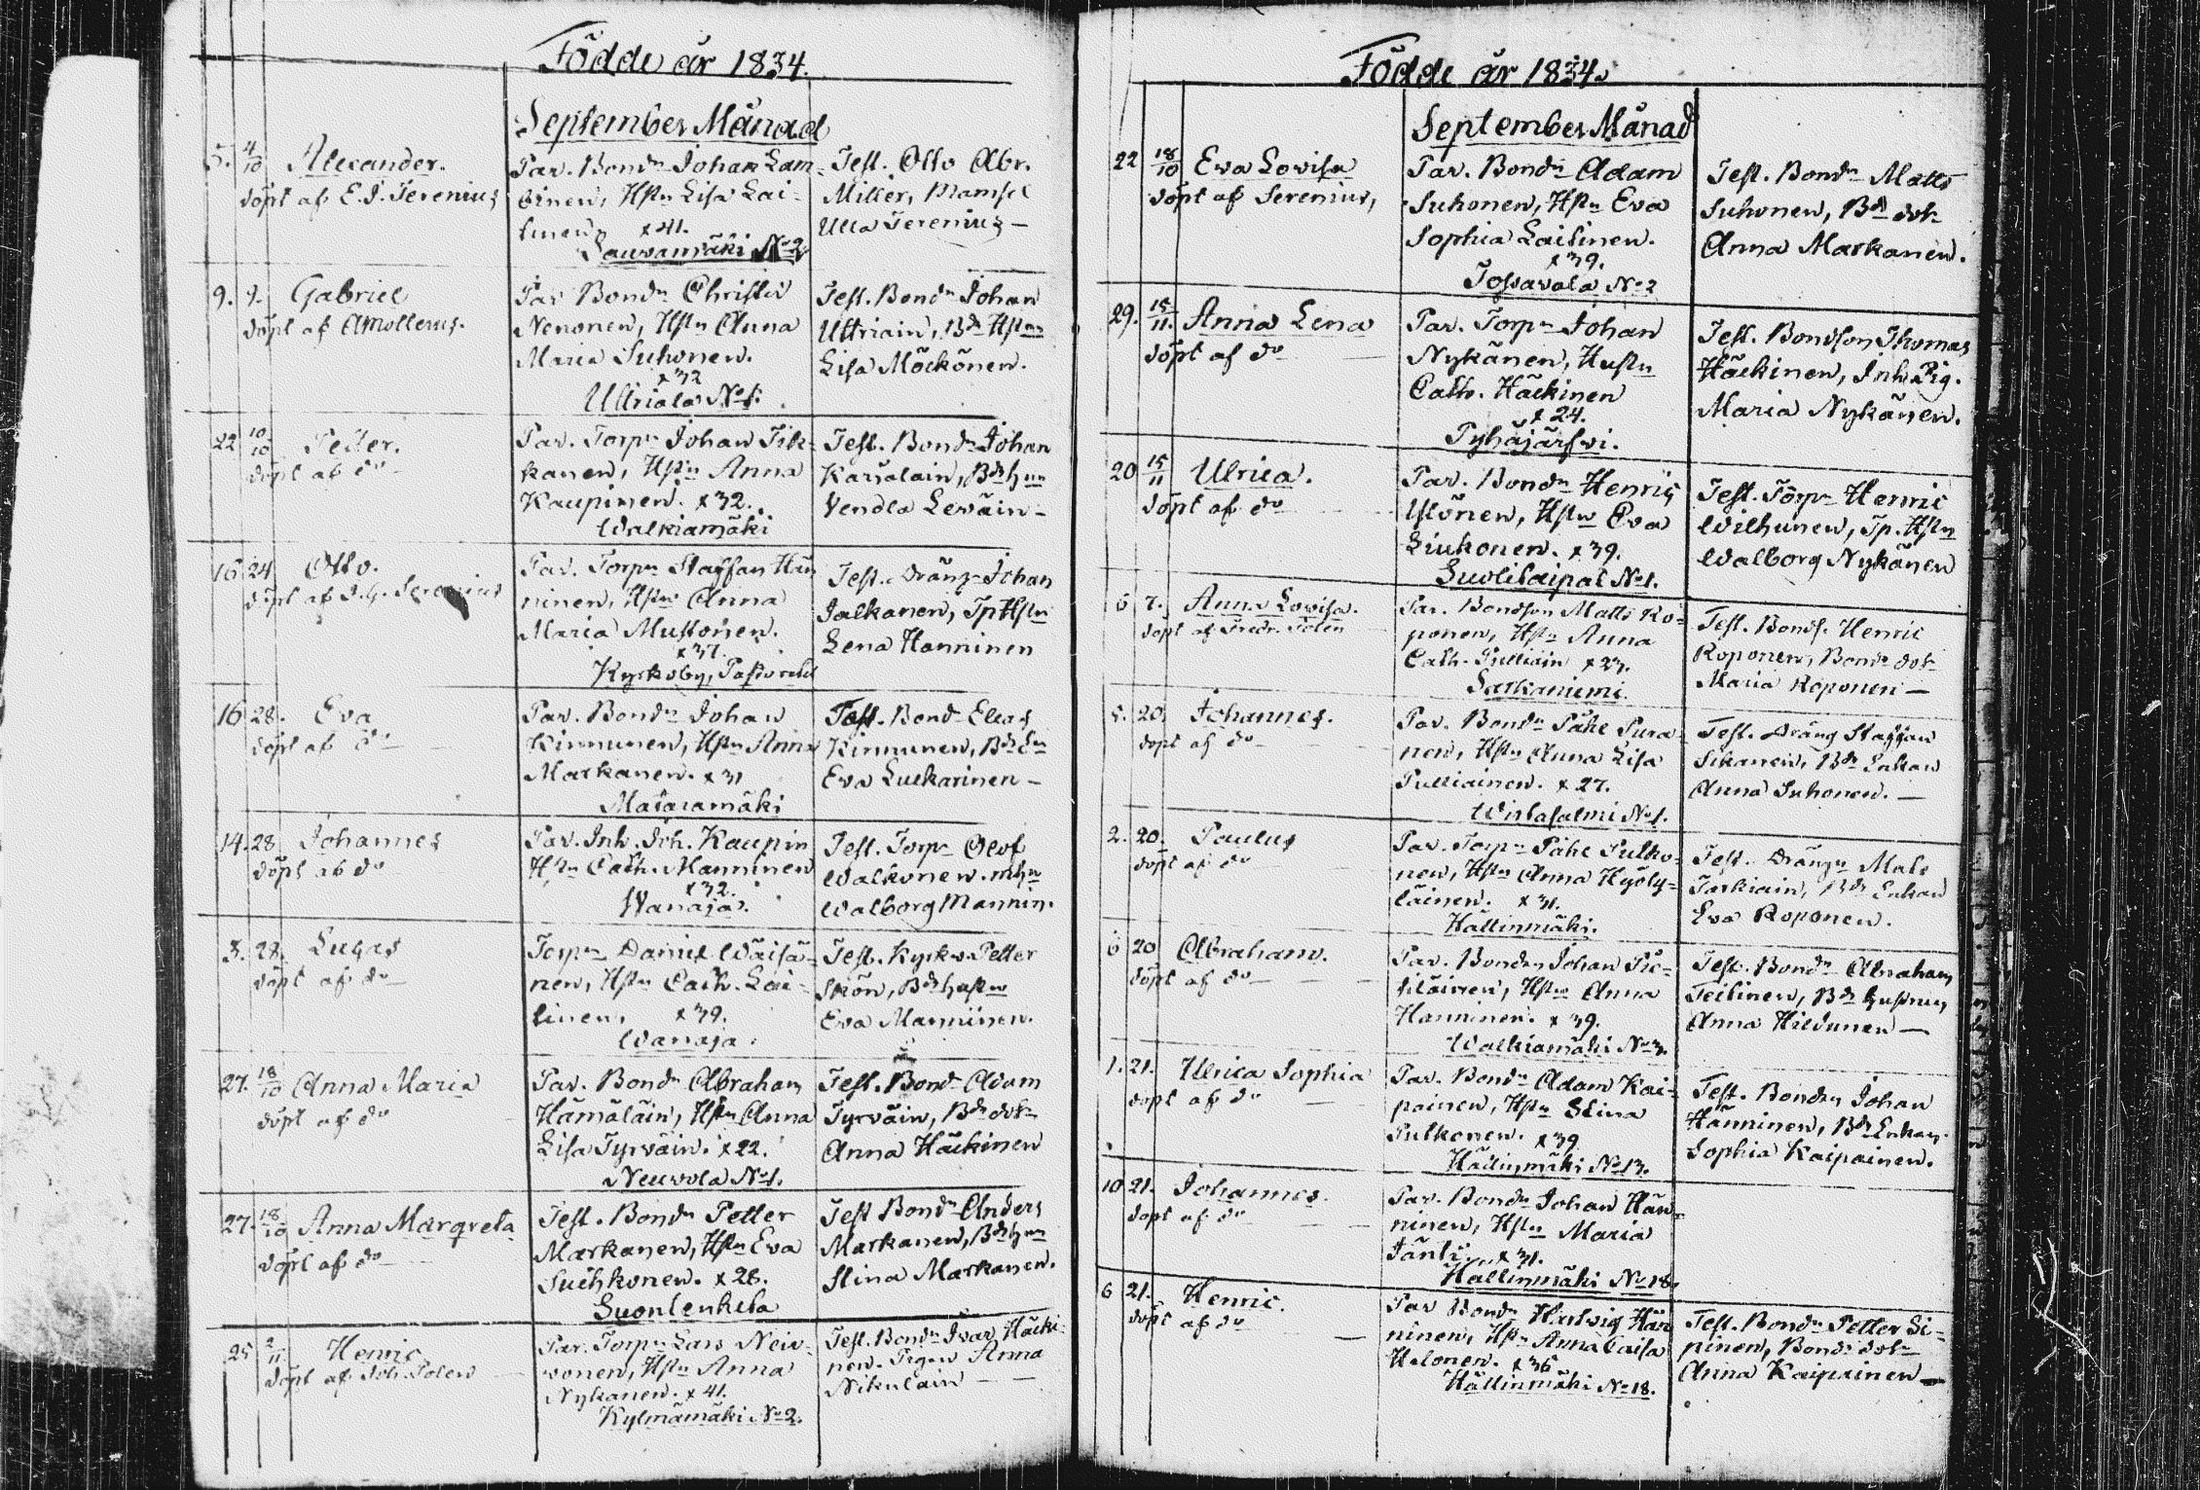 Födde år 1834.
September Månad
5. 4/10 Alexander.
döpt af E. J. Serenius
Par. Bondn Johan Lam-
binen, Hstn Lisa Lai-
tinen x 41.
Lauvamäki No 2
Test. Otto Abr.
Miller, Mamsel
Ulla Serenius -
9. 9. Gabriel
döpt af AMollerus.
Par Bondn Christer
Nenonen, Hstn Anna
Maria Suhonen.
x 32
Uttriala No 1.
Test. Bondn Johan
Uttriain, Bd Hstn
Lisa Möckönen.
22 10/10 Petter.
döpt af do
Par. Torpn Johan Tik-
kanen, Hstn Anna
Kaupinen. x 32.
Walkiamäki
Test. Bondn Johan
Karjalain, Bdhun
Vendla Leväin -
16. 24 Otto.
döpt af J. G. Serenius
Par. Torpn Staffan Hän
ninen, Hstn Anna
Maria Mustonen.
x 37.
Kyrkoby,
Test. Dräng Johan
Jalkanen, Tp Hstn
Lena Hänninen
16 28. Eva
döpt af do
Par. Bondn Johan
Kinnunen, Hstn Anna
Markanen. x 31
Mataramäki
Test. Bond Elias
Kinnunen, Bd
Eva Luckarinen -
14. 28. Johannes
döpt af do
Par. Inh. Joh. Kaupin
Hstn Cath. Manninen
x 32.
Wanaja.
Test. Torpn Olof
Walkonen.
Walborg Mannin.
3. 28. Lucas
döpt af do
Torpn Daniel Wäisä-
nen, Hstn Cath. Lai-
tinen, x 39.
Wanaja
Test. Kyrkv. Petter
Skön, Bdhustru
Eva Manninen.
27. 18/10 Anna Maria
döpt af do
Par. Bondn Abraham
Hämäläin, Hstn Anna
Lisa Tyrväin. x 22.
Neuvola No 1.
Test. Bond Adam
Tyrväin, Bd dotr
Anna Häckinen
27. 18/10 Anna Margreta
döpt af do
Test. Bondn Petter
Markanen, Hstn Eva
Suihkonen. x 28.
Suontenkela
Test Bondn Anders
Markanen, Bdhun
Stina Markanen.
25 2/11 Henric
döpt af Joh. Polen
Par. Torpn Lars Neu-
vonen, Hstn Anna
Nykänen. x 41.
Kylmämäki No 2.
Test. Bondn Ivar Häcki-
nen. Pigan Anna
Nikulain
Födde år 1834.
September Månad
22 18/10 Eva Lovisa
döpt af Serenius,
Par. Bondn Adam
Suhonen, Hstn Eva
Sophia Laitinen.
x 39.
Tossavala No 2
Test. Bondn Matts
Suhonen, Bd dotr
Anna Markanen.
29. 15/11. Anna Lena
döpt af do
Par. Torpn Johan
Nykänen, Hustn
Cath. Häckinen
x 24.
Pyhäjärfvi.
Test. Bondson Thomas
Häckinen, Inh. Pig.
Maria Nykänen.
20 15/11 Ulrica.
döpt af do
Par. Bondn Henric
Ylönen, Hstn Eva
Liukonen. x 39.
No 1.
Test. Torpn Henric
Wilhunen, Tp. Hstn
Walborg Nykänen
6 7. Anna Lovisa.
döpt af Fredr. Polén
Par. Bondson Matts Ro-
ponen, Hstn Anna
Cath. Pulliain x 27.
Sarkaniemi.
Test. Bonds. Henric
Roponen, Bond dotr
Maria Roponen -
5. 20. Johannes.
döpt af do
Par. Bondn Påhl Pura-
nen, Hstn Anna Lisa
Pulliainen. x 27.
Wirtasalmi No 1.
Test. Dräng Staffan
Sikanen, Bd Enkan
Anna Suhonen. -
2. 20. Paulus
döpt af do
Par. Torpn Påhl Pulko-
nen, Hstn Anna Hyöty-
läinen. x 31.
Hällinmäki.
Test. Drängn Mats
Taskiain, Bd Enkan
Eva Roponen.
6 20 Abraham.
döpt af do
Par. Bondn Johan Pie-
tiläinen, Hstn Anna
Hänninen. x 39.
Walkiamäki No 3.
Test. Bondn Abraham
Teitinen, Bd hustrun
Anna Hildunen -
1. 21. Ulrica Sophia
döpt af do
Par. Bondn Adam Kai-
painen, Hstn Stina
Pulkonen. x 39
Hällinmäki No 13.
Test. Bondn Johan
Hänninen, Bd Enkan
Sophia Kaipainen.
10 21. Johannes.
döpt af do
Par. Bondn Johan Hän-
ninen, Hstn Maria
Jänti, x 31.
Hällinmäki No 18.
6 21. Henric.
döpt af do
Par Bondn Hedvig Hän
ninen, Hstn Anna Caisa
Halonen. x 36
Hällinmäki No 18.
Test. Bondn Petter Si-
pinen, Bond dotr
Anna Kaipainen -